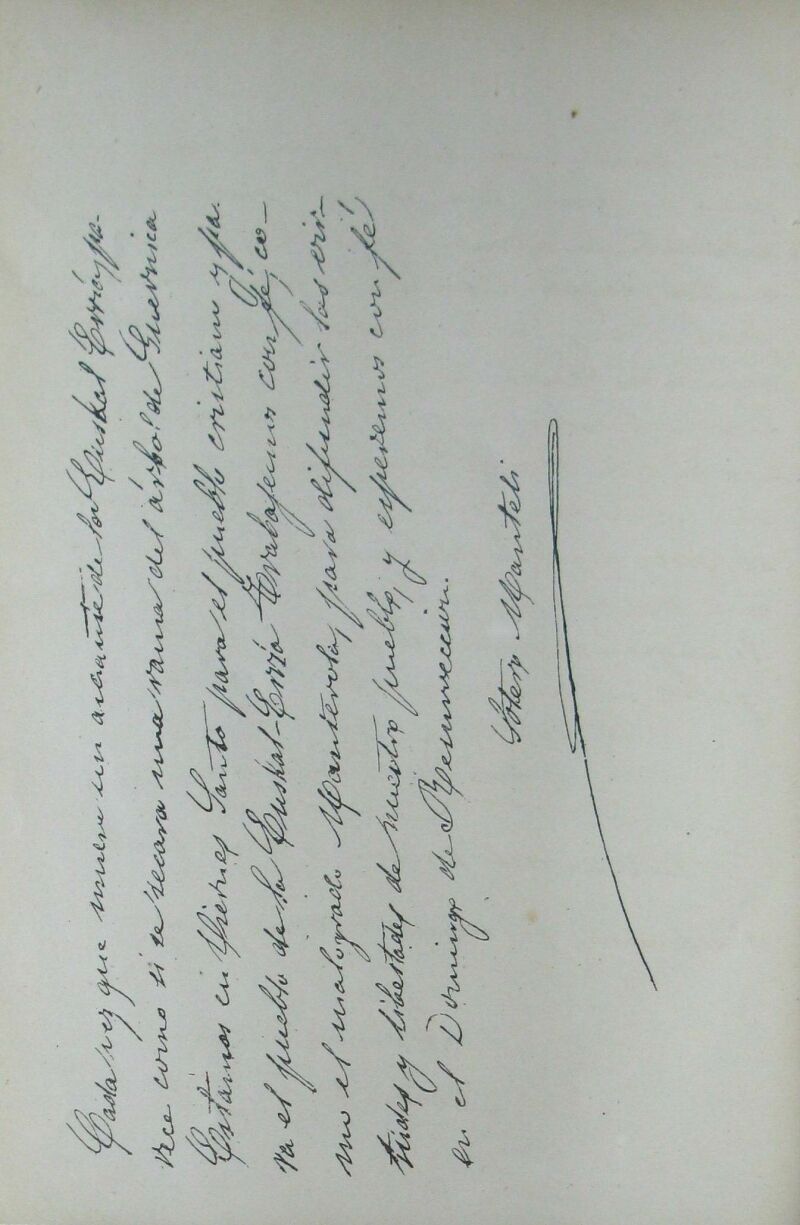 Cada vez que muere un amante de la Euskal Erria, pa-
rece como si se secara una rama del árbol de Guernica
Estamos en Viernes Santo para el pueblo cristiano y pa-
ra el pueblo de la Euskal-Erria Trabajemos con fé, co-
mo el malogrado Manterola, para difundir las vir-
tudes y libertades de nuestro pueblo, y esperemos con fé
en el Domingo de Resurreccion.
Sotero Manteli